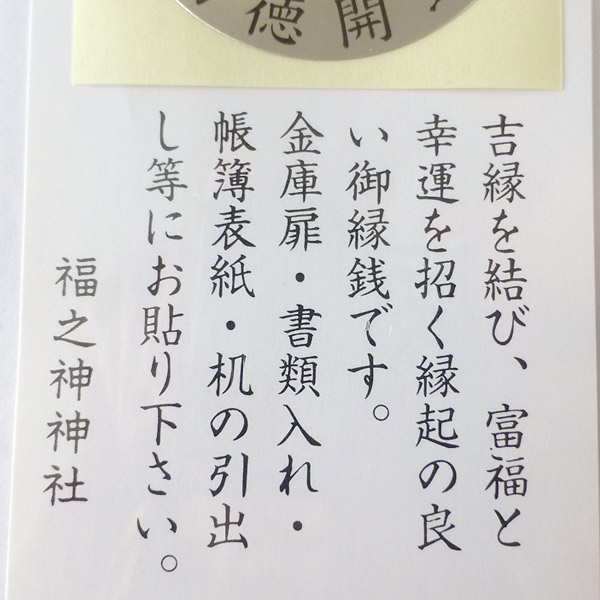 徳開
吉縁を結び、富福と
幸運を招く縁起の良
い御縁銭です。
金庫扉・書類入れ・
帳簿表紙・机の引出
し等にお貼り下さい。
福之神神社